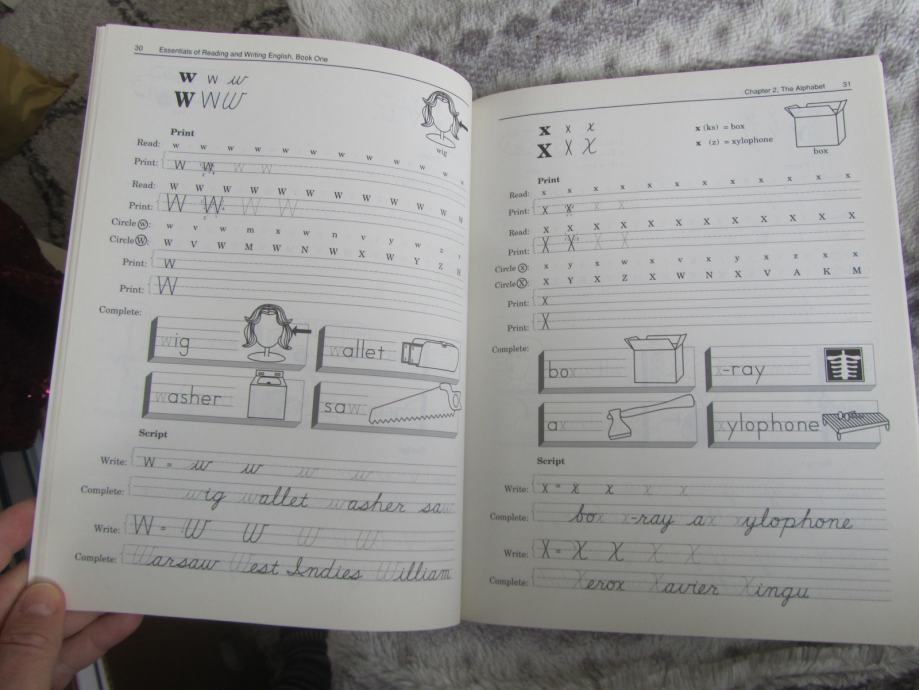 30 Essentials of Reading and Writing English, Book One
W w w
W W W
wig
Print
Read: w w w w w w w w w w w w
Print: w w w w
Read: W W W W W W W W W W W W
Print: W W W W
Circle w: w v w m x w n v y w z v
Circle W: W V W M W N W X W Y Z
Print: w
Print: W
Complete:
wig wallet
washer saw
Script
Write: w = w w w w
Complete: wig wallet washer saw
Write: W = W W W W
Complete: Warsaw West Indies William
Chapter 2, The Alphabet 31
x x x
X X X
x (ks) = box
x (z) = xylophone
box
Print
Read: x x x x x x x x x x x x x
Print: x x x x
Read: X X X X X X X X X X X X X
Print: X X X X
Circle x: x y x w x v x y x z x x
Circle X: X Y X Z X W N X V A K M
Print: x
Print: X
Complete:
box x-ray
ax xylophone
Script
Write: x = x x x x
Complete: box x-ray ax xylophone
Write: X = X X X X
Complete: Xerox Xavier Xingu